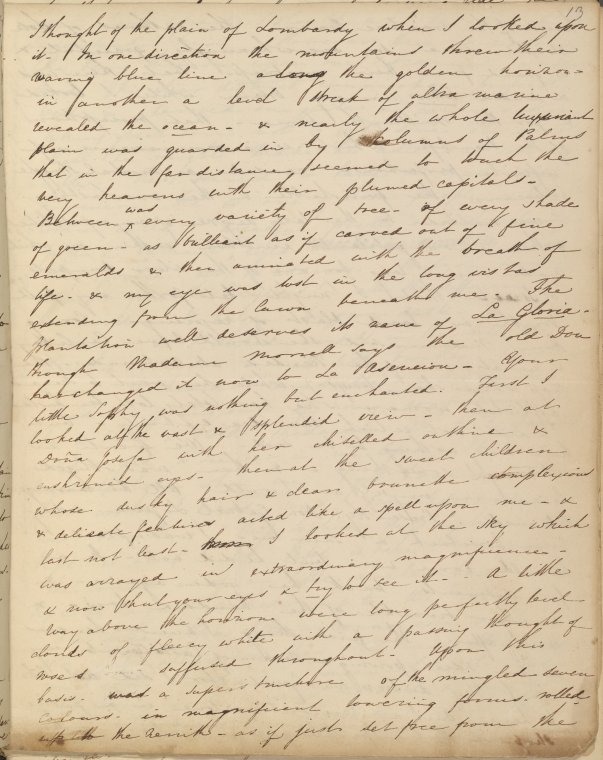 13
I thought of the plain of Lombardy when I looked upon
it - In one direction the mountains threw their
waving blue line along the golden horizon -
in another a level streak of ultra marine
revealed the ocean - & nearly the whole luxuriant
plain was guarded in by columns of Palms
that in the far distance seemed to touch the
very heavens with their plumed capitals -
Between was every variety of tree - of every shade
of green - as brilliant as if carved out of fine
emeralds & then animated with the breath of
life - & my eye was lost in the long vistas
extending from the lawn beneath me. The
plantation well deserves its name of La Gloria -
though Madame Morrell says the old Don
has changed it now to La Ascencion - Your
little Sophy was nothing but enchanted. First I
looked at the vast & splendid view - then at
Doña Josefa with her chiselled outline &
enshrined eyes - then at the sweet children
whose dusky hair & clear brunette complexions
& delicate features acted like a spell upon me - &
last not least - I looked at the sky which
was arrayed in extraordinary magnificence -
& now shut your eyes & try to see it - A little
way above the horizon were long perfectly level
clouds of fleecy white with a passing thought of
rose suffused throughout - Upon this
basis - was a superstructure of the mingled seven
colours - in magnificent towering forms - rolled
up to the zenith - as if just set free from the